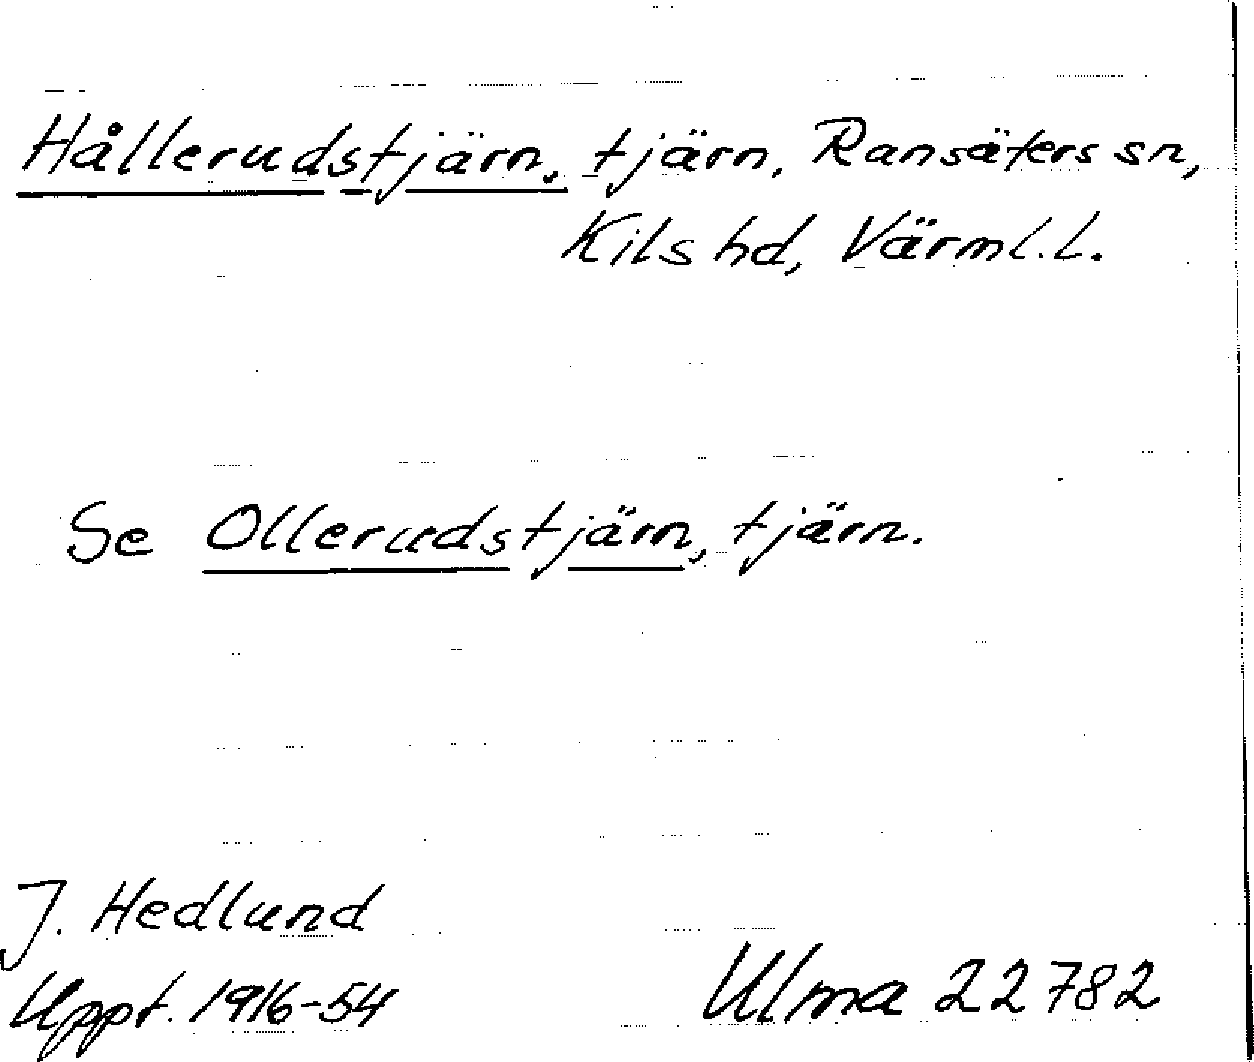 Hållerudstjärn, tjärn, Ransäters sn,
Kils hd, Värml. l.
Se Ollerudstjärn, tjärn.
J. Hedlund
Uppt. 1916-54
Ulma 22782